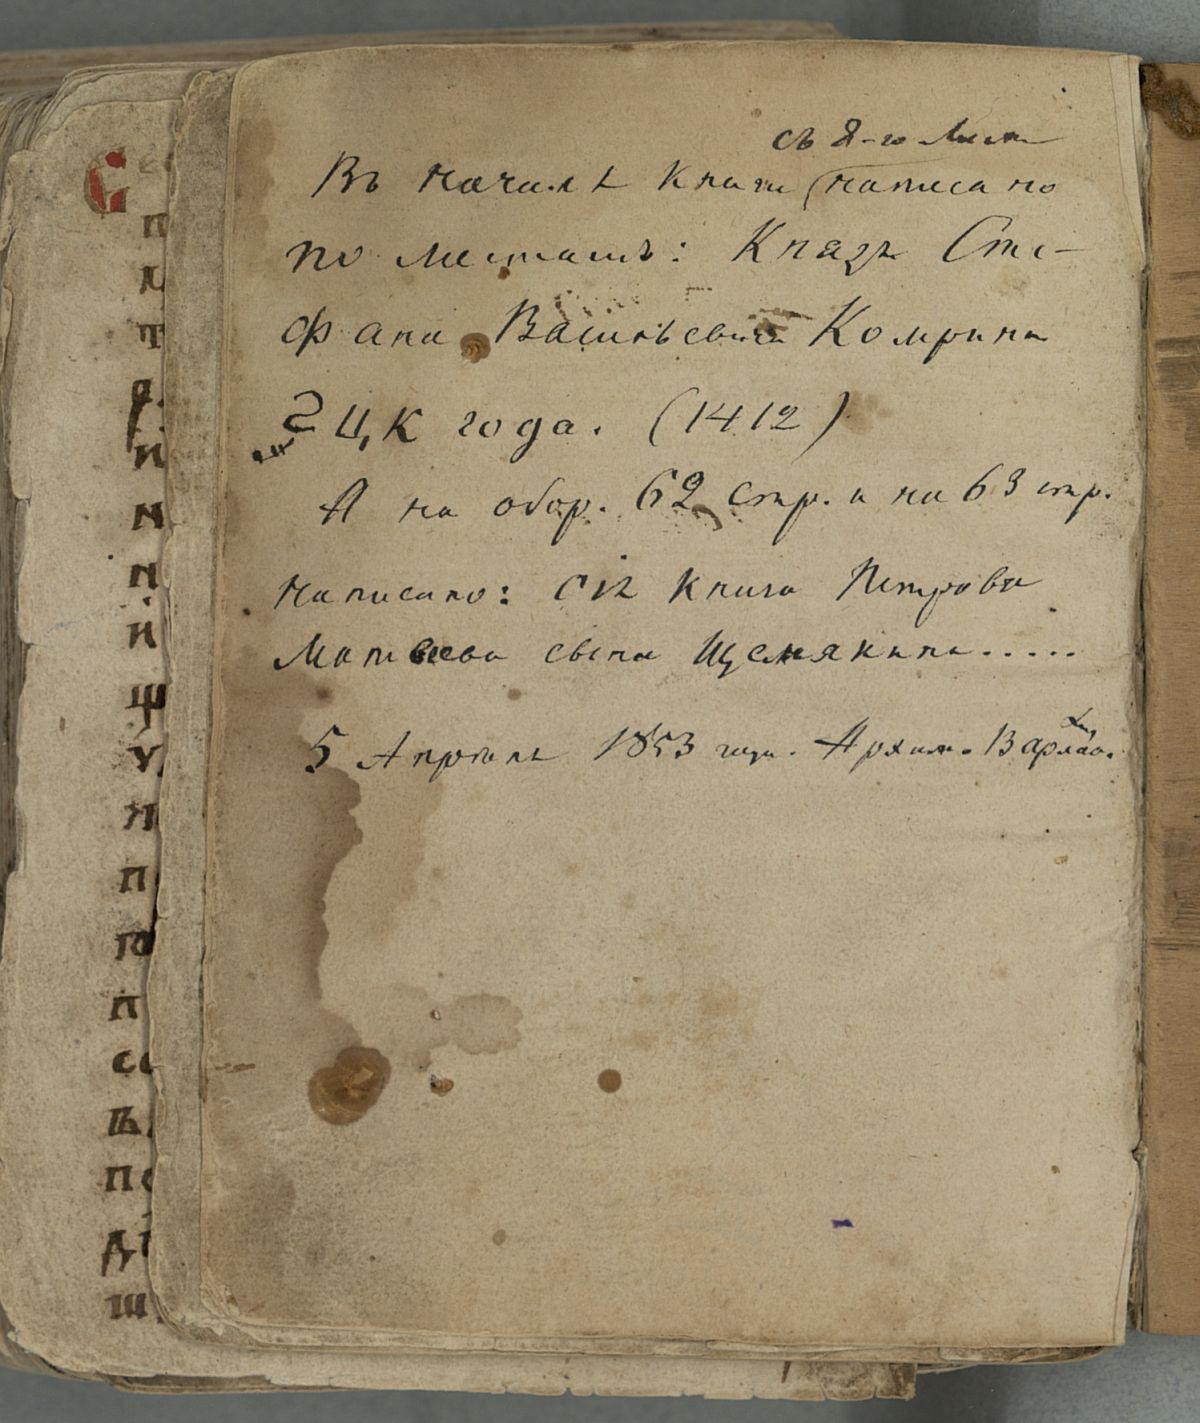 съ 8-го Листа
Въ началѣ книги (написано
по местамъ: Князя Сте-
фана Васильевича Комрина
҂ЅЦК года. (1412)
А на обор. 62 стр. и на 63 стр.
написано: сія книга Петрова
Матвеева сына Щемякина.....
5 Апрѣля 1853 года. Архим. Варлаа.
С
п
т
и
н
н
и
щ
у
н
п
ю
п
сс
в
по
ді
ш